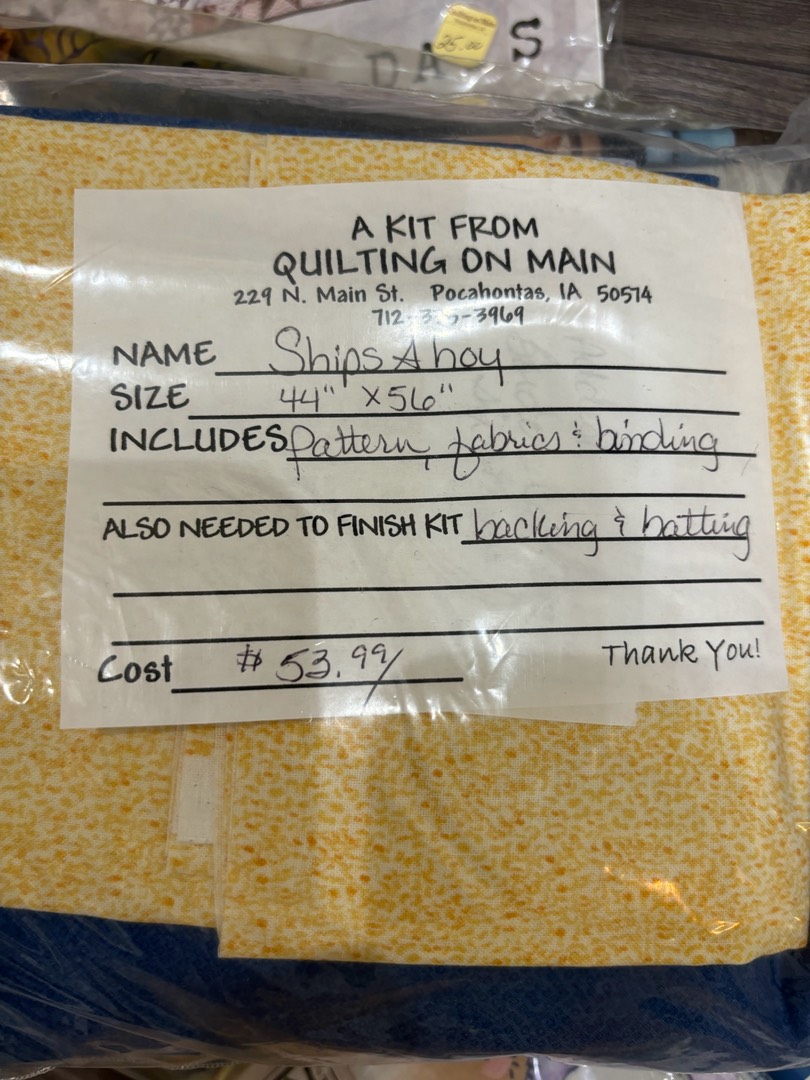 25.00
DA S
A KIT FROM
QUILTING ON MAIN
229 N. Main St. Pocahontas, IA 50574
712- -3969
NAME Ships Ahoy
SIZE 44" x 56"
INCLUDES pattern, fabrics & binding
ALSO NEEDED TO FINISH KIT backing & batting
Cost $ 53.99/
Thank You!